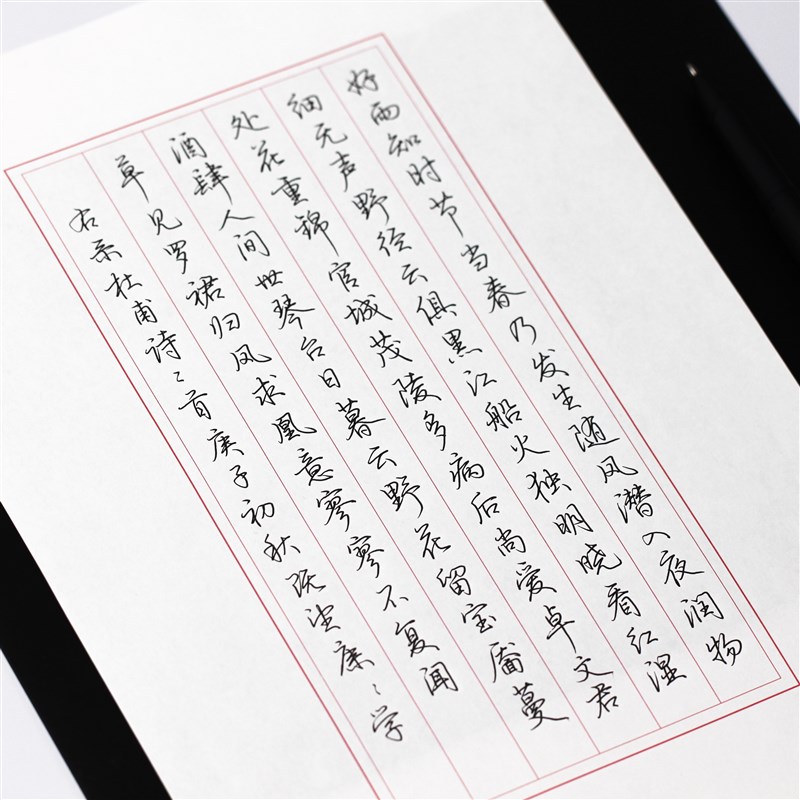 好雨知时节当春乃发生随风潜入夜润物
细无声野径云俱黑江船火独明晓看红湿
处花重锦官城茂陵多病后尚爱卓文君
酒肆人间世琴台日暮云野花留宝靥蔓
草见罗裙归凤求凰意寥寥不复闻
右录杜甫诗二首庚子初秋学